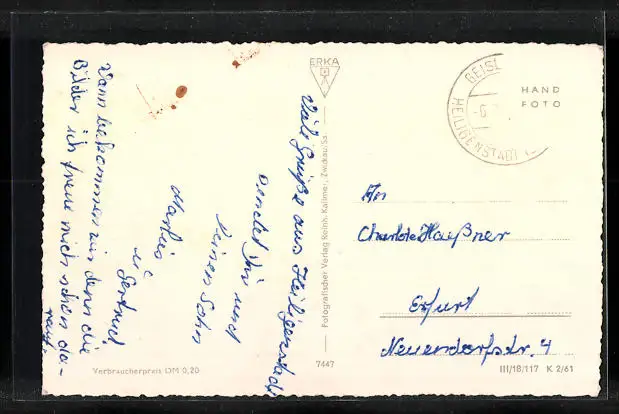 Viele Grüße aus Heiligenstadt
sendet Ihr und
Ihrem Sohn
Marlies
u. Gertrud
Wann bekommen wir denn die
Bilder ich freue mich schon da-
rauf.
ERKA
Fotografischer Verlag Reinh. Kallmer, Zwickau/Sa.
7447
Verbraucherpreis DM 0,20
HEILIGENSTADT
HAND
FOTO
An
Charlotte Haißner
Erfurt
Neuendorfstr. 4
III/18/117 K 2/61